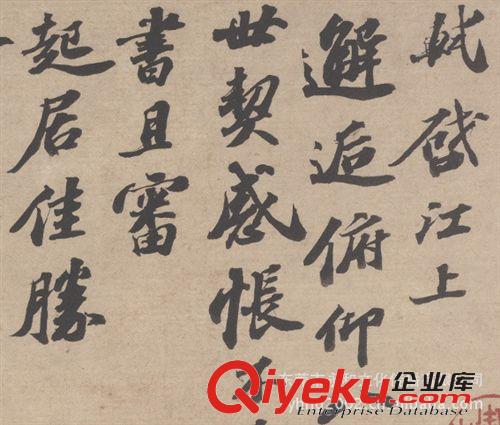 軾啓江上
邂逅俯仰
世契感悵不
書且審
起居佳勝
Qiyeku企业库
Enterprise Database